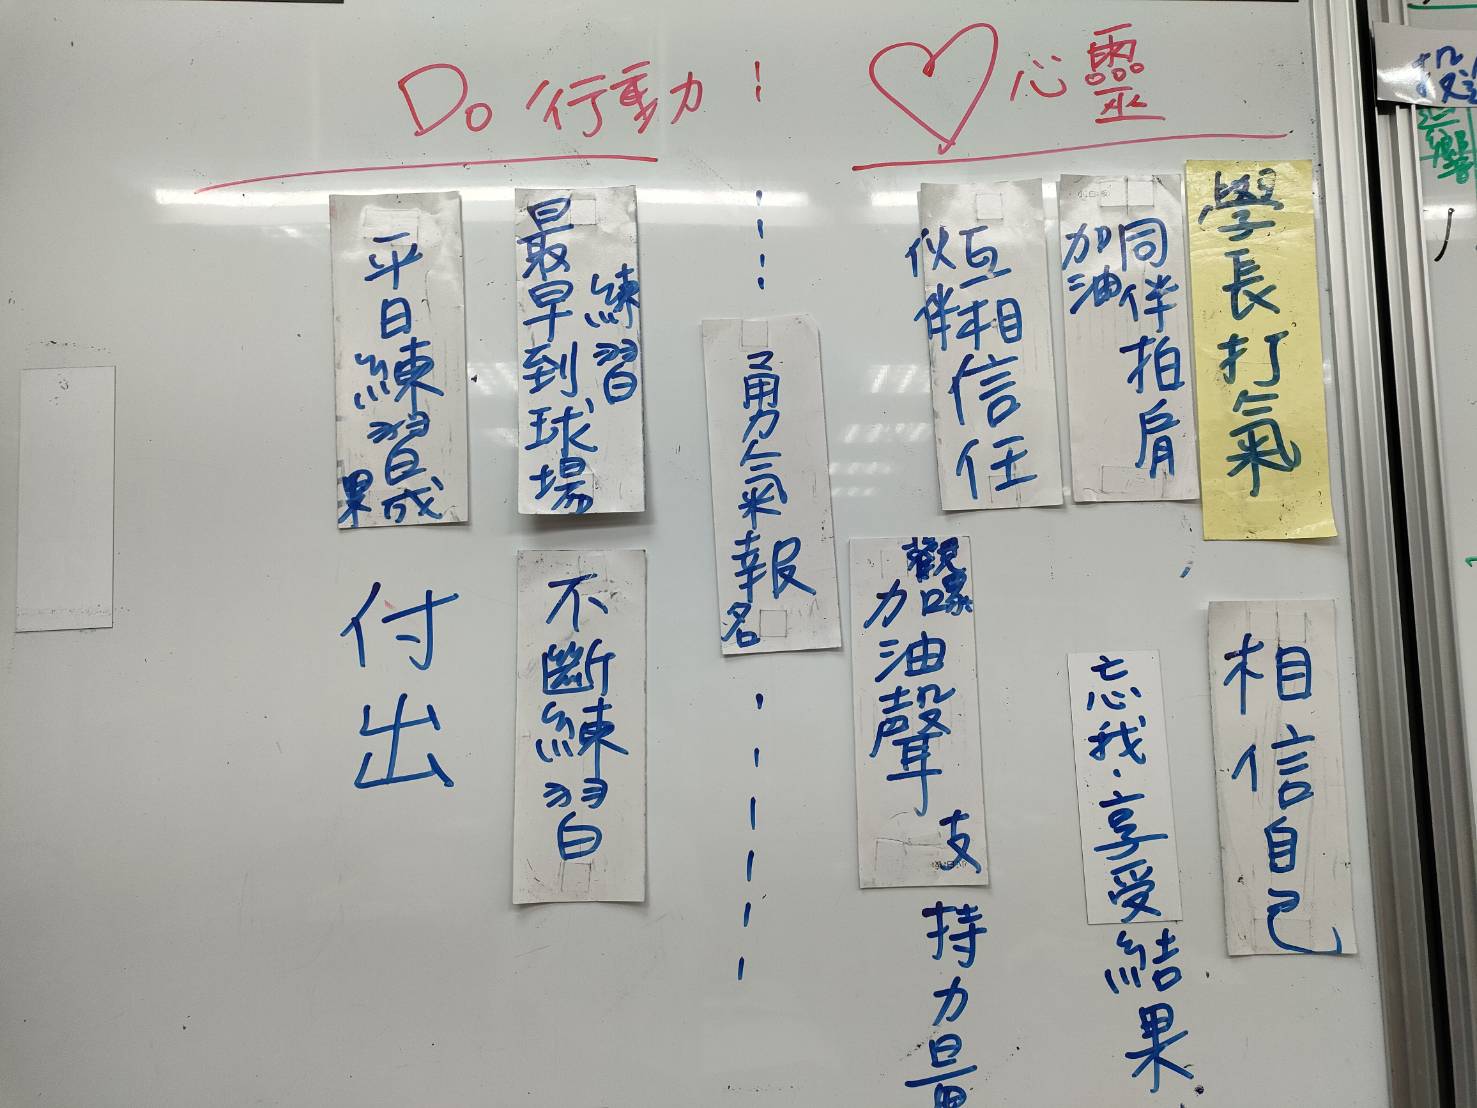 Do 行動
心靈
學長打氣
同伴拍肩
加油
互相信任
伙伴
最早到球場
練習
平日練習成
果
勇氣報
名
觀眾
加油聲
支
持力量
相信自己
忘我·享受
結果
不斷練習
付出